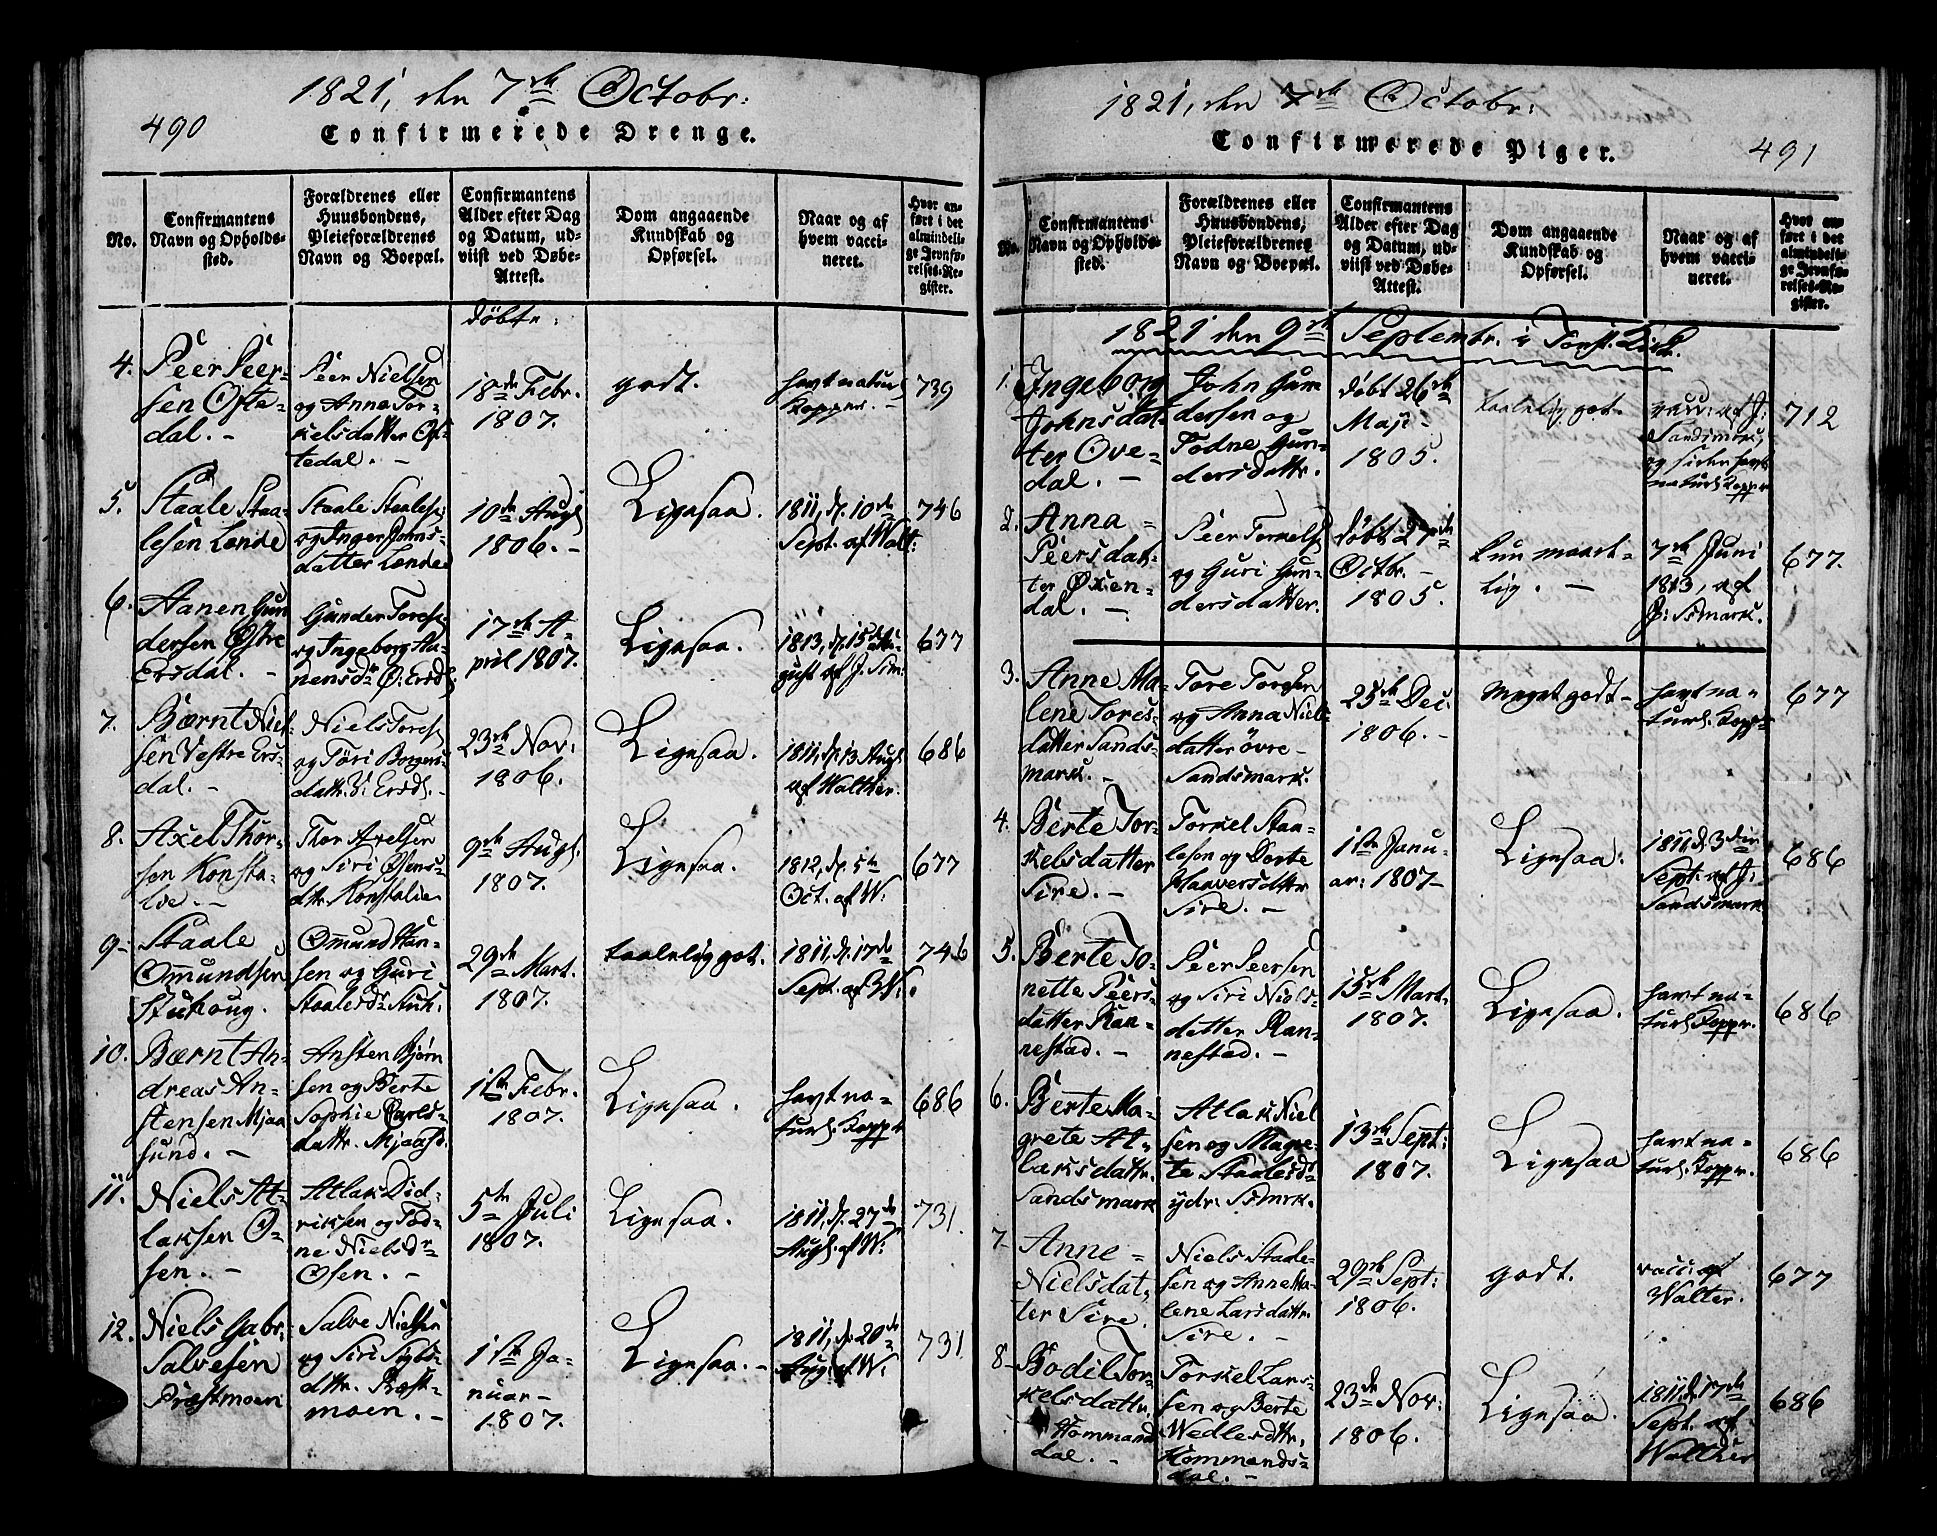 1821, den 7de Octobr:
490
Confirmerede Drenge.
No.
Confirmantens
Navn og Opholds-
sted.
Forældrenes eller
Huusbondens,
Pleieforældrenes
Navn og Boepæl.
Confirmantens
Alder efter Dag
og Datum, ud-
viist ved Døbe-
Attest.
Dom angaaende
Kundskab og
Opførsel.
Naar og af
hvem vacci-
neret.
Hvor an-
ført i det
almindeli-
ge Jevnfø-
relses-Re-
gister.
døbt:
4.
Peer Peer-
sen Ofte-
dal. -
Peer Nielsen
og Anna Tor-
kelsdatter Of-
tedal. -
18de Febr.
1807.
godt.
havt naturl
Kopper. -
739
5.
Staale Staa-
lesen Lende
Staale Staales:
og Inger Johns-
datter Lende
10de Augl
1806. -
Ligesaa.
1811, d. 10de
Sept. af Walt:
746
6.
Aanen Gun
dersen Østre
Ersdal. -
Gunder Tores:
og Ingeborg Aa-
nensdr Ø: Ersd:
17de A-
pril 1807.
Ligesaa.
1813, d. 15de Au-
gust af J. Sm.
677
7.
Bærnt Niel-
sen Vestre Ers-
dal. -
Niels Tores:
og Töri Borgers-
dattr. V: Ersd. -
23de Nov:
1806.
Ligesaa.
1811, d. 13 Augl
af Walther.
686
8.
Axel Thor-
sen Konsta-
lie. -
Thor Axelsen
og Siri Osmus-
dtr. Konstalie
9de Augl.
1807.
Ligesaa.
1812, d. 5te
Oct. af W:
677
9-
Staale
Omundsen
Stuhoug.
Omund Han-
sen og Guri
Staalesdr Stuh:
29de Mart.
1807.
taalelig got.
1811, d. 17de
Sept. af W:
746
10.
Bærnt An-
dreas An-
stensen Mjaa
sund. -
Ansten Bjørn
sen og Berte
Sophie Carls-
dattr. Mjaasd.
1ste Febr.
1807.
Ligesaa.
havt na-
turl. Kopper
686
11.
Niels At-
laksen O-
sen. -
Atlak Did-
riksen og Tod-
ne Nielsdr-
Osen. -
5te Juli
1807.
Ligesaa.
1811, d. 27de
Augl. af W:
731.
12.
Niels Gabr:
Salvesen
Præstmoen
Salve Nielsen
og Siri Sigbs-
dtr. Præst-
moen. -
1ste Ja-
nuar -
1807.
Ligesaa. -
1811, d. 20de
Aug. af W:
731
1821, den 7de Octobr:
Confirmerede Piger.
491
No.
Confirmantens
Navn og Opholds-
sted.
Forældrenes eller
Huusbondens,
Pleieforældrenes
Navn og Boepæl.
Confirmantens
Alder efter Dag
og Datum, ud-
viist ved Døbe-
Attest.
Dom angaaende
Kundskab og
Opførsel.
Naar og af
hvem vacci-
neret.
Hvor an-
ført i det
almindeli-
ge Jevnfø-
relses-Re-
gister.
1821 den 9de Septembr. i Tonst. Kirk.
1.
Ingeborg
Johnsdat-
ter Ove-
dal. -
John Gun
dersen og
Todne Gun-
dersdattr.
døbt 26de
Maji-
1805.
taalelig got -
vacc: af J:
Sandsmark,
og siden havt
naturl. Kopper
712
2.
Anna -
Peersdat-
ter Øxen-
dal. -
Peer Torkels:
og Guri Gun-
dersdatter.
døbt 27de
Octbr. -
1805.
kun maade-
lig. -
7de Juni
1813, af
J: Ssmark.
677.
3.
Anne Ma-
lene Tores-
datter Sands-
mark. -
Tore Toresen
og Anna Niels-
datter övre-
Sandsmark.
25de Dec.
1806. -
Meget godt -
havt na-
turl. Kopper
677
4.
Berte Tor-
kelsdatter
Sire. -
Torkel Staa-
lesen og Dorte
Haaversdattr.
Sire. -
1ste Janu-
ar: 1807-
Ligesaa.
1811, d. 3die
Sept. af J:
Sandsmark
686
5.
Berte To-
nette Peers-
datter Ran-
nestad. -
Peer Peersen
og Siri Niels-
datter Ran-
nestad. -
15de Mart.
1807.
Ligesaa.
havt na-
turl. Kopper.
686
6.
Berte Ma-
grete At-
laksdattr.
Sandsmark
Atlak Niel
sen og Magre-
te Staalesdr
ydr. Ssmrk.
13de Sept:
1807.
Ligesaa
havt na-
turl. Kopper.
686
7-
Anne -
Nielsdat-
ter Sire.
Niels Staale-
sen og Anne Ma-
lene Larsdattr.
Sire. -
29de Sept:
1806.
godt.
vacc: af
Walter.
677
8-
Bodil Tor-
kelsdattr.
Hommend
dal. -
Torkel Lars-
sen og Berte
Wedlesdtr,
Hommends-
dal. -
23de Nov:
1806.
Ligesaa.
1811, d. 17de
Sept. af
Walther
686